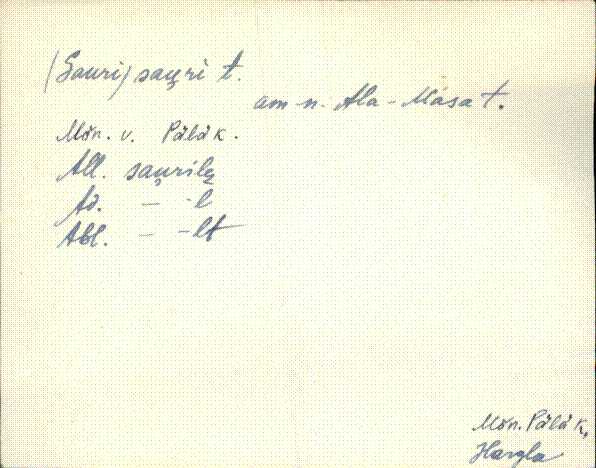 (Sauri) sau̯ri t.
am-n. Ala-Mässa t.
Mõn. v. Pälä k.
All. sau̯rilę
Ad. — -l
Abl. — -lt
Mõn. Pälä k,
Hargla